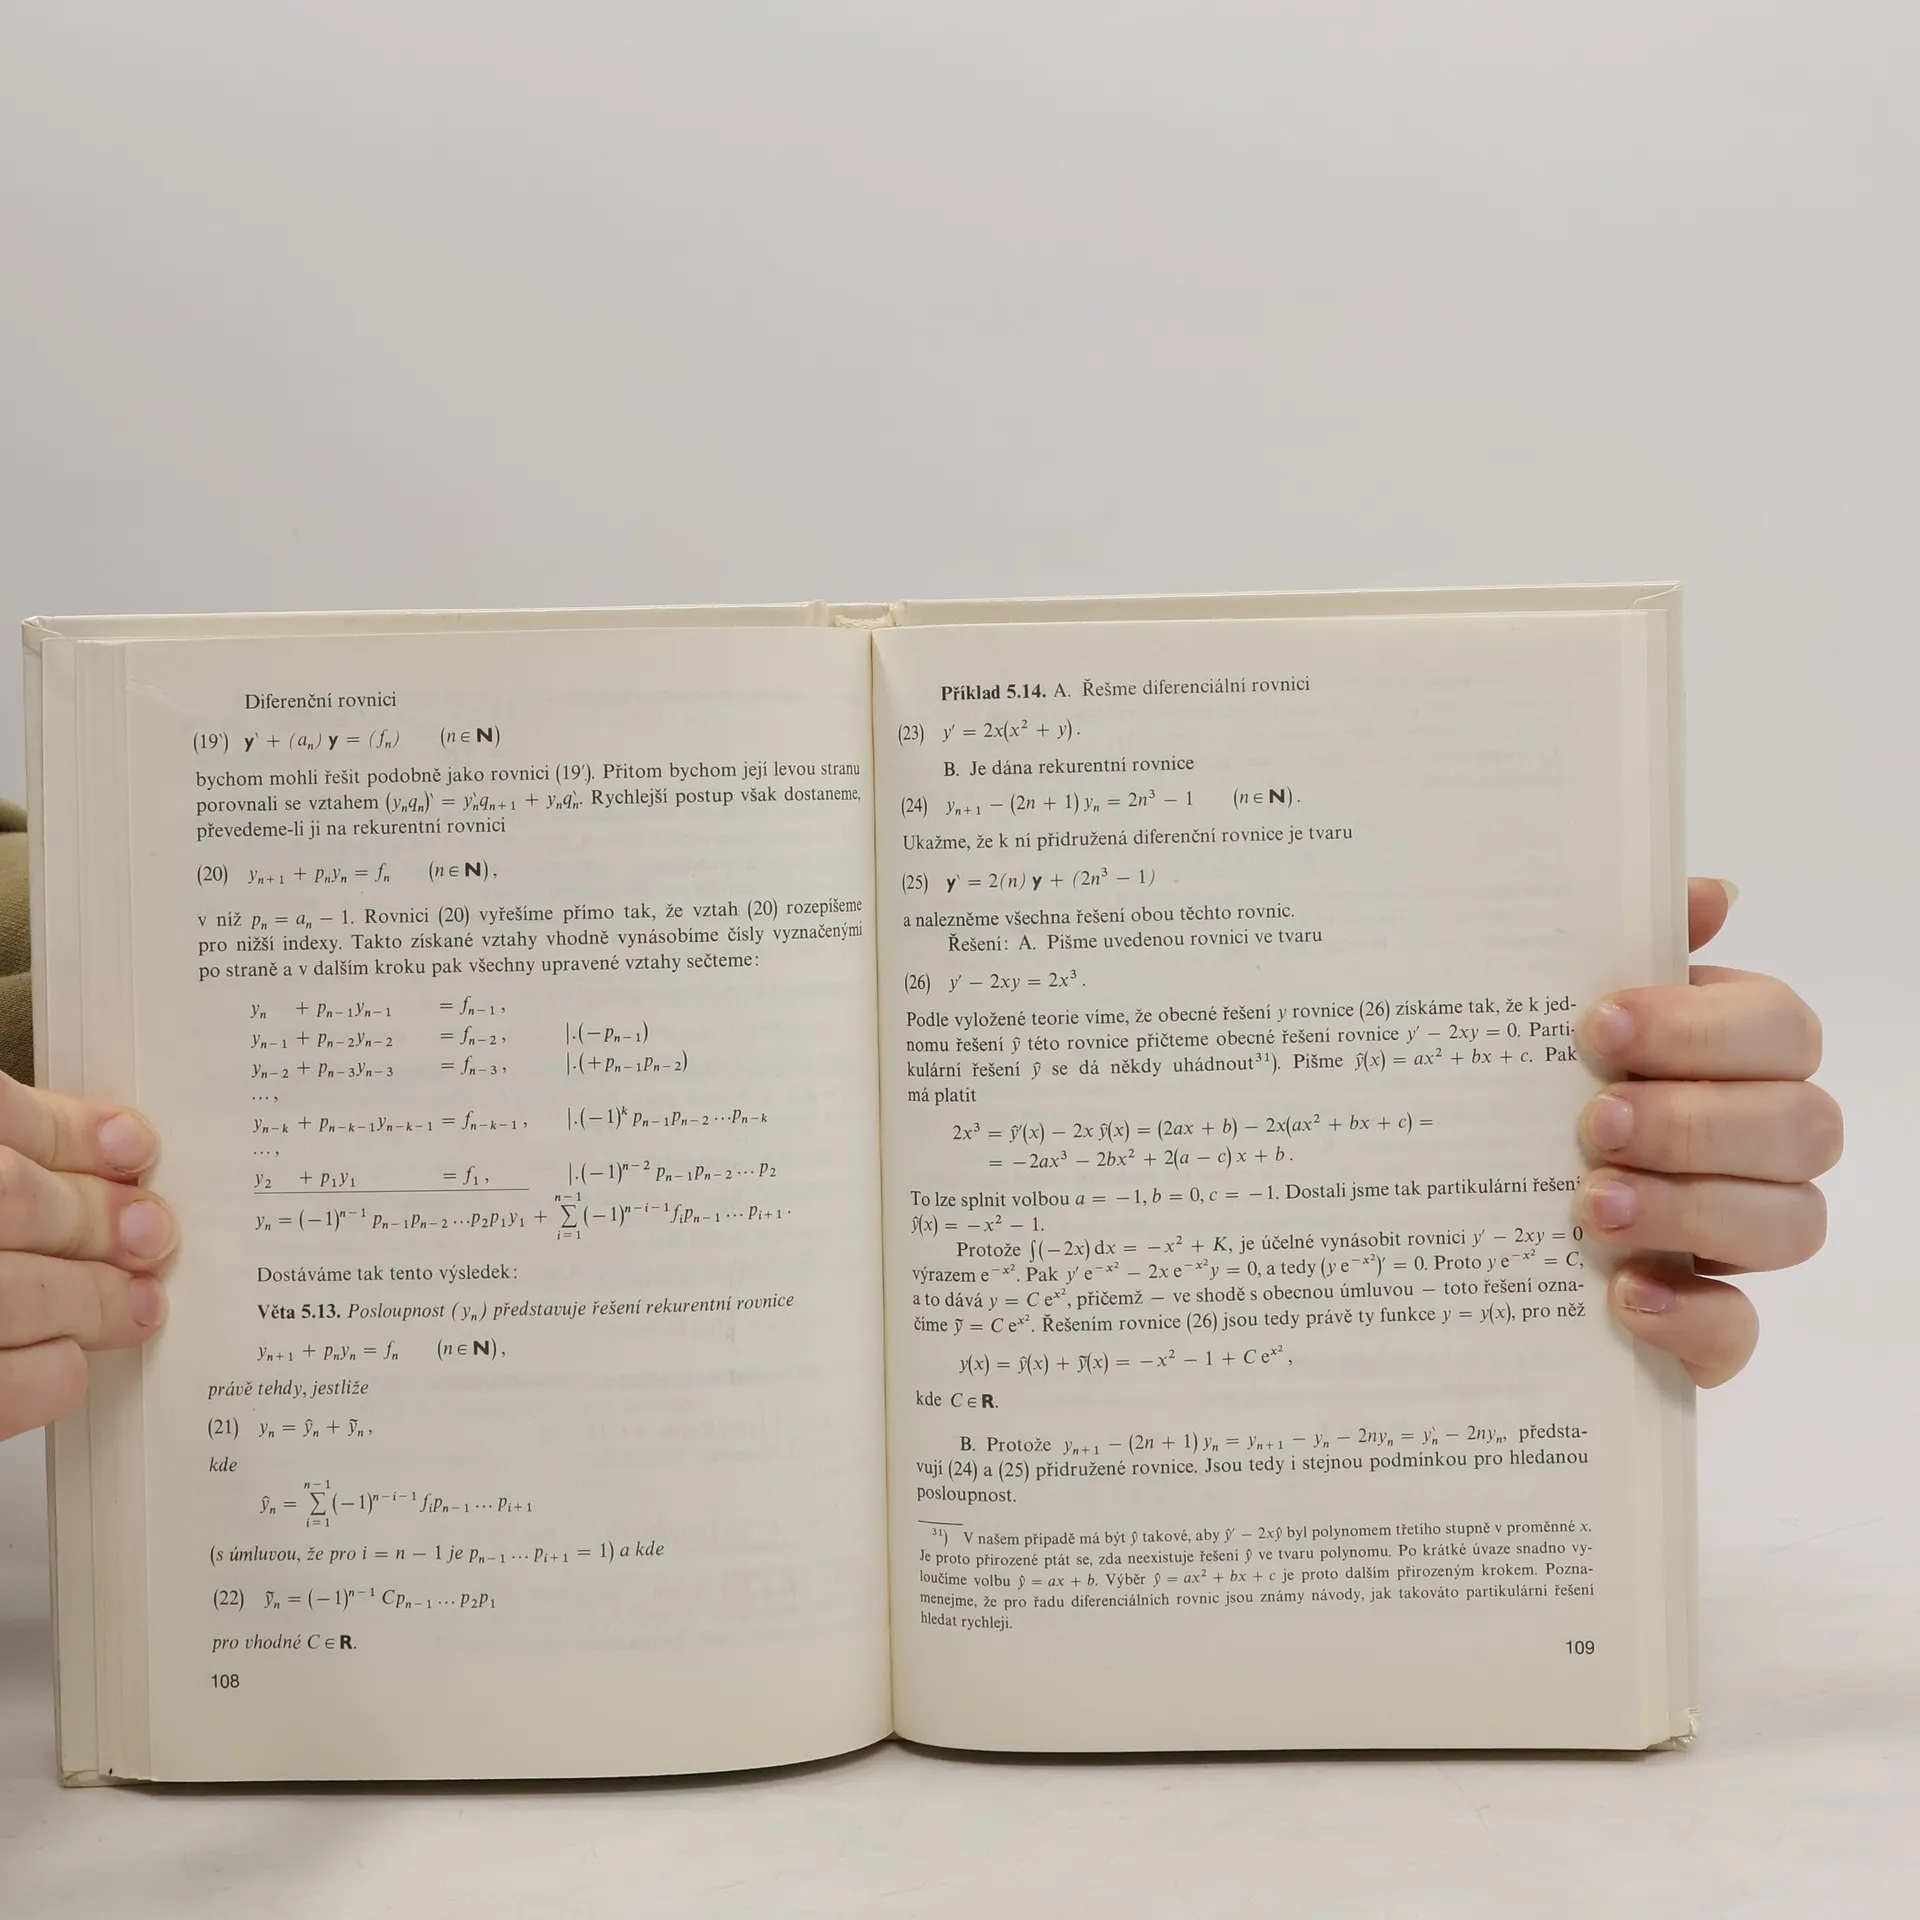 Diferenční rovnici
(19‵) y‵ + (aₙ) y = (fₙ) (n ∈ N)
bychom mohli řešit podobně jako rovnici (19′). Přitom bychom její levou stranu
porovnali se vztahem (yₙqₙ)‵ = y‵ₙqₙ₊₁ + yₙq‵ₙ. Rychlejší postup však dostaneme,
převedeme-li ji na rekurentní rovnici
(20) yₙ₊₁ + pₙyₙ = fₙ (n ∈ N),
v níž pₙ = aₙ − 1. Rovnici (20) vyřešíme přímo tak, že vztah (20) rozepíšeme
pro nižší indexy. Takto získané vztahy vhodně vynásobíme čísly vyznačenými
po straně a v dalším kroku pak všechny upravené vztahy sečteme:
yₙ + pₙ₋₁yₙ₋₁ = fₙ₋₁,
yₙ₋₁ + pₙ₋₂yₙ₋₂ = fₙ₋₂, |.(−pₙ₋₁)
yₙ₋₂ + pₙ₋₃yₙ₋₃ = fₙ₋₃, |.(+pₙ₋₁pₙ₋₂)
...,
yₙ₋ₖ + pₙ₋ₖ₋₁yₙ₋ₖ₋₁ = fₙ₋ₖ₋₁, |.(−1)ᵏ pₙ₋₁pₙ₋₂...pₙ₋ₖ
...,
y₂ + p₁y₁ = f₁, |.(−1)ⁿ⁻² pₙ₋₁pₙ₋₂ ... p₂
yₙ = (−1)ⁿ⁻¹ pₙ₋₁pₙ₋₂ ...p₂p₁y₁ + ∑_{i=1}^{n−1} (−1)ⁿ⁻ⁱ⁻¹ fᵢpₙ₋₁ ... pᵢ₊₁.
Dostáváme tak tento výsledek:
Věta 5.13. Posloupnost (yₙ) představuje řešení rekurentní rovnice
yₙ₊₁ + pₙyₙ = fₙ (n ∈ N),
právě tehdy, jestliže
(21) yₙ = ŷₙ + ỹₙ,
kde
ŷₙ = ∑_{i=1}^{n−1} (−1)ⁿ⁻ⁱ⁻¹ fᵢpₙ₋₁ ... pᵢ₊₁
(s úmluvou, že pro i = n − 1 je pₙ₋₁ ... pᵢ₊₁ = 1) a kde
(22) ỹₙ = (−1)ⁿ⁻¹ Cpₙ₋₁ ... p₂p₁
pro vhodné C ∈ R.
108
Příklad 5.14. A. Řešme diferenciální rovnici
(23) y′ = 2x(x² + y).
B. Je dána rekurentní rovnice
(24) yₙ₊₁ − (2n + 1) yₙ = 2n³ − 1 (n ∈ N).
Ukažme, že k ní přidružená diferenční rovnice je tvaru
(25) y‵ = 2(n) y + (2n³ − 1)
a nalezněme všechna řešení obou těchto rovnic.
Řešení: A. Pišme uvedenou rovnici ve tvaru
(26) y′ − 2xy = 2x³.
Podle vyložené teorie víme, že obecné řešení y rovnice (26) získáme tak, že k jed-
nomu řešení ŷ této rovnice přičteme obecné řešení rovnice y′ − 2xy = 0. Parti-
kulární řešení ŷ se dá někdy uhádnout³¹). Pišme ŷ(x) = ax² + bx + c. Pak
má platit
2x³ = ŷ′(x) − 2x ŷ(x) = (2ax + b) − 2x(ax² + bx + c) =
= −2ax³ − 2bx² + 2(a − c) x + b.
To lze splnit volbou a = −1, b = 0, c = −1. Dostali jsme tak partikulární řešení
ŷ(x) = −x² − 1.
Protože ∫(−2x) dx = −x² + K, je účelné vynásobit rovnici y′ − 2xy = 0
výrazem e^{−x²}. Pak y′ e^{−x²} − 2x e^{−x²}y = 0, a tedy (y e^{−x²})′ = 0. Proto y e^{−x²} = C,
a to dává y = C e^{x²}, přičemž — ve shodě s obecnou úmluvou — toto řešení ozna-
číme ỹ = C e^{x²}. Řešením rovnice (26) jsou tedy právě ty funkce y = y(x), pro něž
y(x) = ŷ(x) + ỹ(x) = −x² − 1 + C e^{x²},
kde C ∈ R.
B. Protože yₙ₊₁ − (2n + 1) yₙ = yₙ₊₁ − yₙ − 2nyₙ = y‵ₙ − 2nyₙ, představ-
vují (24) a (25) přidružené rovnice. Jsou tedy i stejnou podmínkou pro hledanou
posloupnost.
³¹) V našem případě má být ŷ takové, aby ŷ′ − 2xŷ byl polynomem třetího stupně v proměnné x.
Je proto přirozené ptát se, zda neexistuje řešení ŷ ve tvaru polynomu. Po krátké úvaze snadno vy-
loučíme volbu ŷ = ax + b. Výběr ŷ = ax² + bx + c je proto dalším přirozeným krokem. Pozna-
menejme, že pro řadu diferenciálních rovnic jsou známy návody, jak takováto partikulární řešení
hledat rychleji.
109